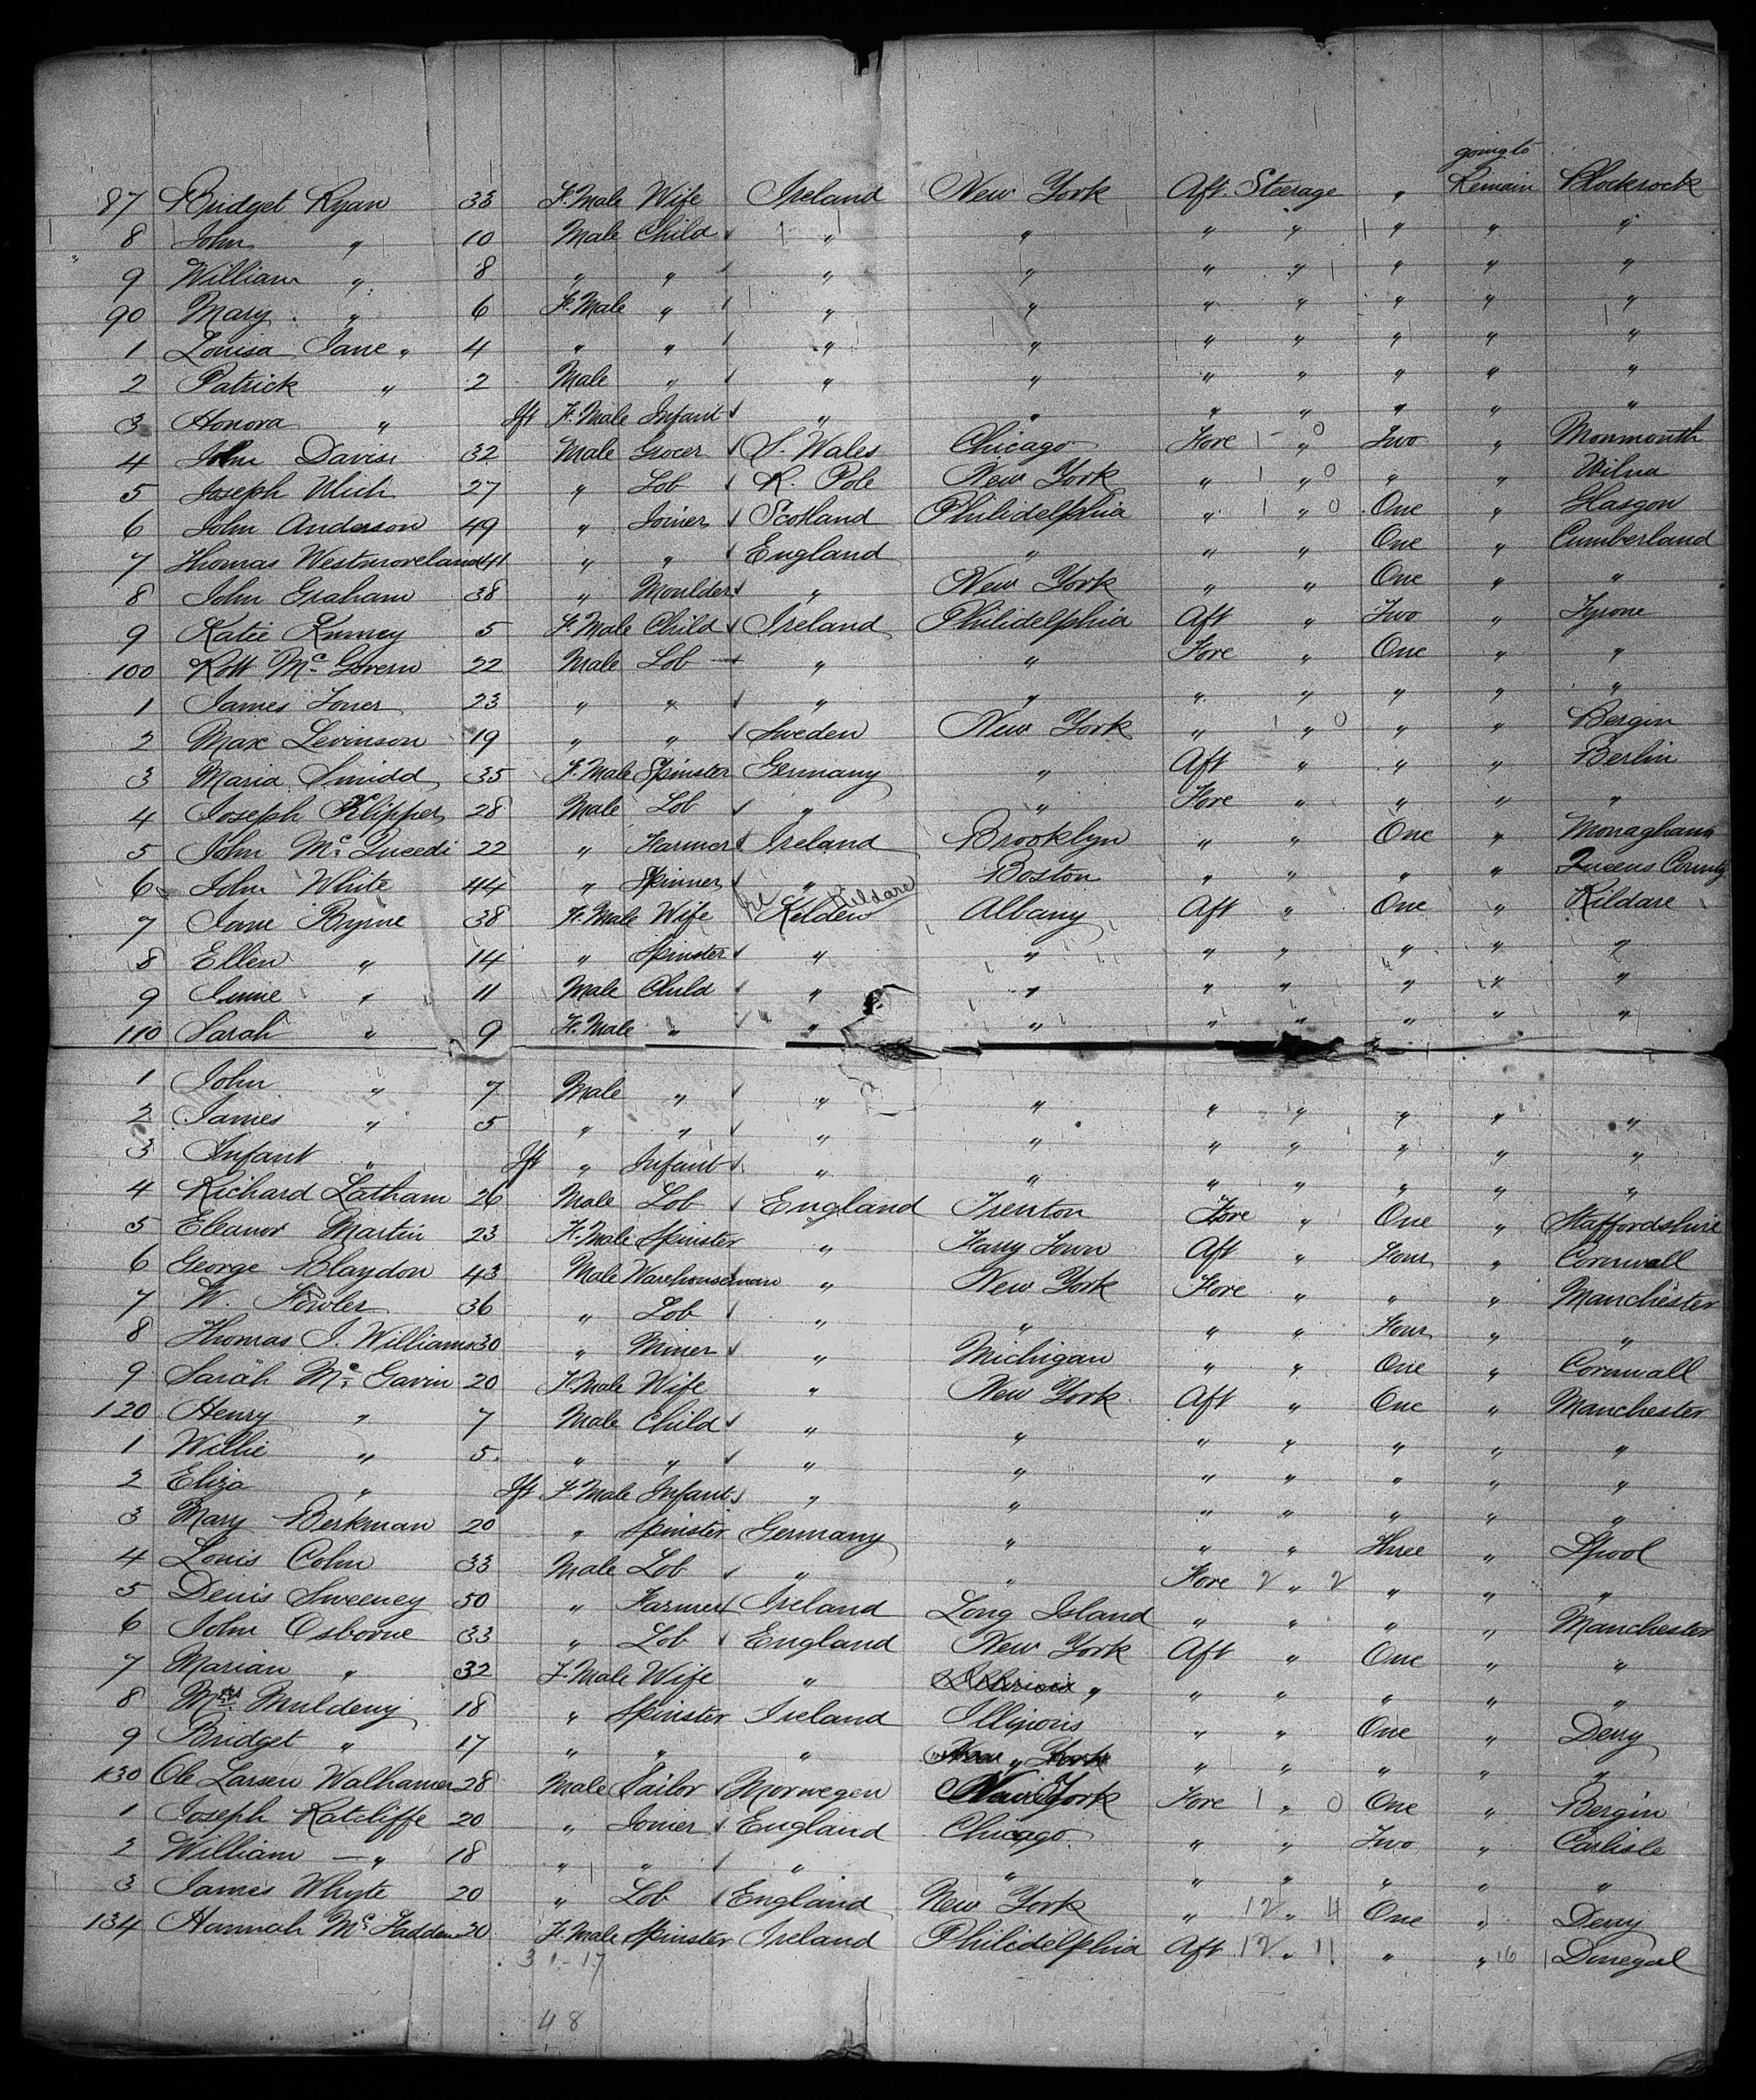 going to
87 Bridget Ryan 33 F. Male Wife Ireland New York Aft Steerage " Remain Blockrock
8 John " 10 Male Child " " " " " " "
9 William " 8 " " " " " " " " "
90 Mary " 6 F. Male " " " " " " " "
1 Louisa Jane " 4 " " " " " " " " "
2 Patrick " 2 Male " " " " " " " "
3 Honora " Ift F. Male Infant " " " " " " "
4 John Davis 32 Male Grocer S. Wales Chicago Fore 1 " 0 Two " Monmouth
5 Joseph 27 " Lob R. Pole New York " 1 " 0 " " Wilna
6 John Anderson 49 " Joiner Scotland Philidelphia " 1 " 0 One " Glasgow
7 Thomas Westmoreland 41 " " England " " " One " Cumberland
8 John Graham 38 " Moulder " New York " " One " "
9 Katie 5 F. Male Child Ireland Philidelphia Aft " Two " Tyrone
100 Robt Mc Govern 22 Male Lob " " Fore " One " "
1 James 23 " " " " " " " " "
2 Max Levinson 19 " " Sweden New York " 1 " 0 " " Bergin
3 Maria Smidd 35 F. Male Spinster Germany " Aft " " " Berlin
4 Joseph Klipper 28 Male Lob " " Fore " " " "
5 John Mc 22 " Farmer Ireland Brooklyn " " One " Monaghan
6 John White 44 " Spinner " Boston " " " " Queens County
Ire Kildare
7 Jane Byrne 38 F. Male Wife Kildew Albany Aft " One " Kildare
8 Ellen " 14 " Spinster " " " " " " "
9 " 11 Male Child " " " " " " "
110 Sarah " 9 F. Male " " " " " " " "
1 John " 7 Male " " " " " " " "
2 James " 5 " " " " " " " " "
3 Infant " Ift " Infant " " " " " " "
4 Richard Latham 26 Male Lob England Trenton Fore " One " Staffordshire
5 Eleanor Martin 23 F. Male Spinster " Harry Town Aft " Four " Cornwall
6 George Blaydon 43 Male Warehouseman " New York Fore " " " Manchester
7 W. Fowler 36 " Lob " " " " Four " "
8 Thomas J. Williams 30 " Miner " Michigan " " One " Cornwall
9 Sarah Mc Gavin 20 F. Male Wife " New York Aft " One " Manchester
120 Henry " 7 Male Child " " " " " " "
1 Willie " 5 " " " " " " " " "
2 Eliza " Ift F. Male Infant " " " " " " "
3 Mary Berkman 20 " Spinster Germany " " " Three " Lpool
4 Louis Cohn 33 Male Lob " " Fore 2 " 2 " " "
5 Denis Sweeney 50 " Farmer Ireland Long Island " " " " Manchester
6 John Osborne 33 " Lob England New York Aft " One " "
7 Marian " 32 F. Male Wife " " " " " " "
8 Muldeny 18 " Spinster Ireland Illinois " " One " Derry
9 Bridget " 17 " " " " " " " " " "
130 Ole Larsen Walhamer 28 Male Tailor Norwegen New York Fore 1 " 0 One " Bergin
1 Joseph Ratcliffe 20 " Joiner England Chicago " " Two " Carlisle
2 William — " 18 " " " " " " " " "
3 James Whyte 20 " Lob England New York " 12 " 4 One " Derry
134 Hannah Mc Fadden 20 F. Male Spinster Ireland Philidelphia Aft 12 " 11 " " 16 Dinegal
31-17
48